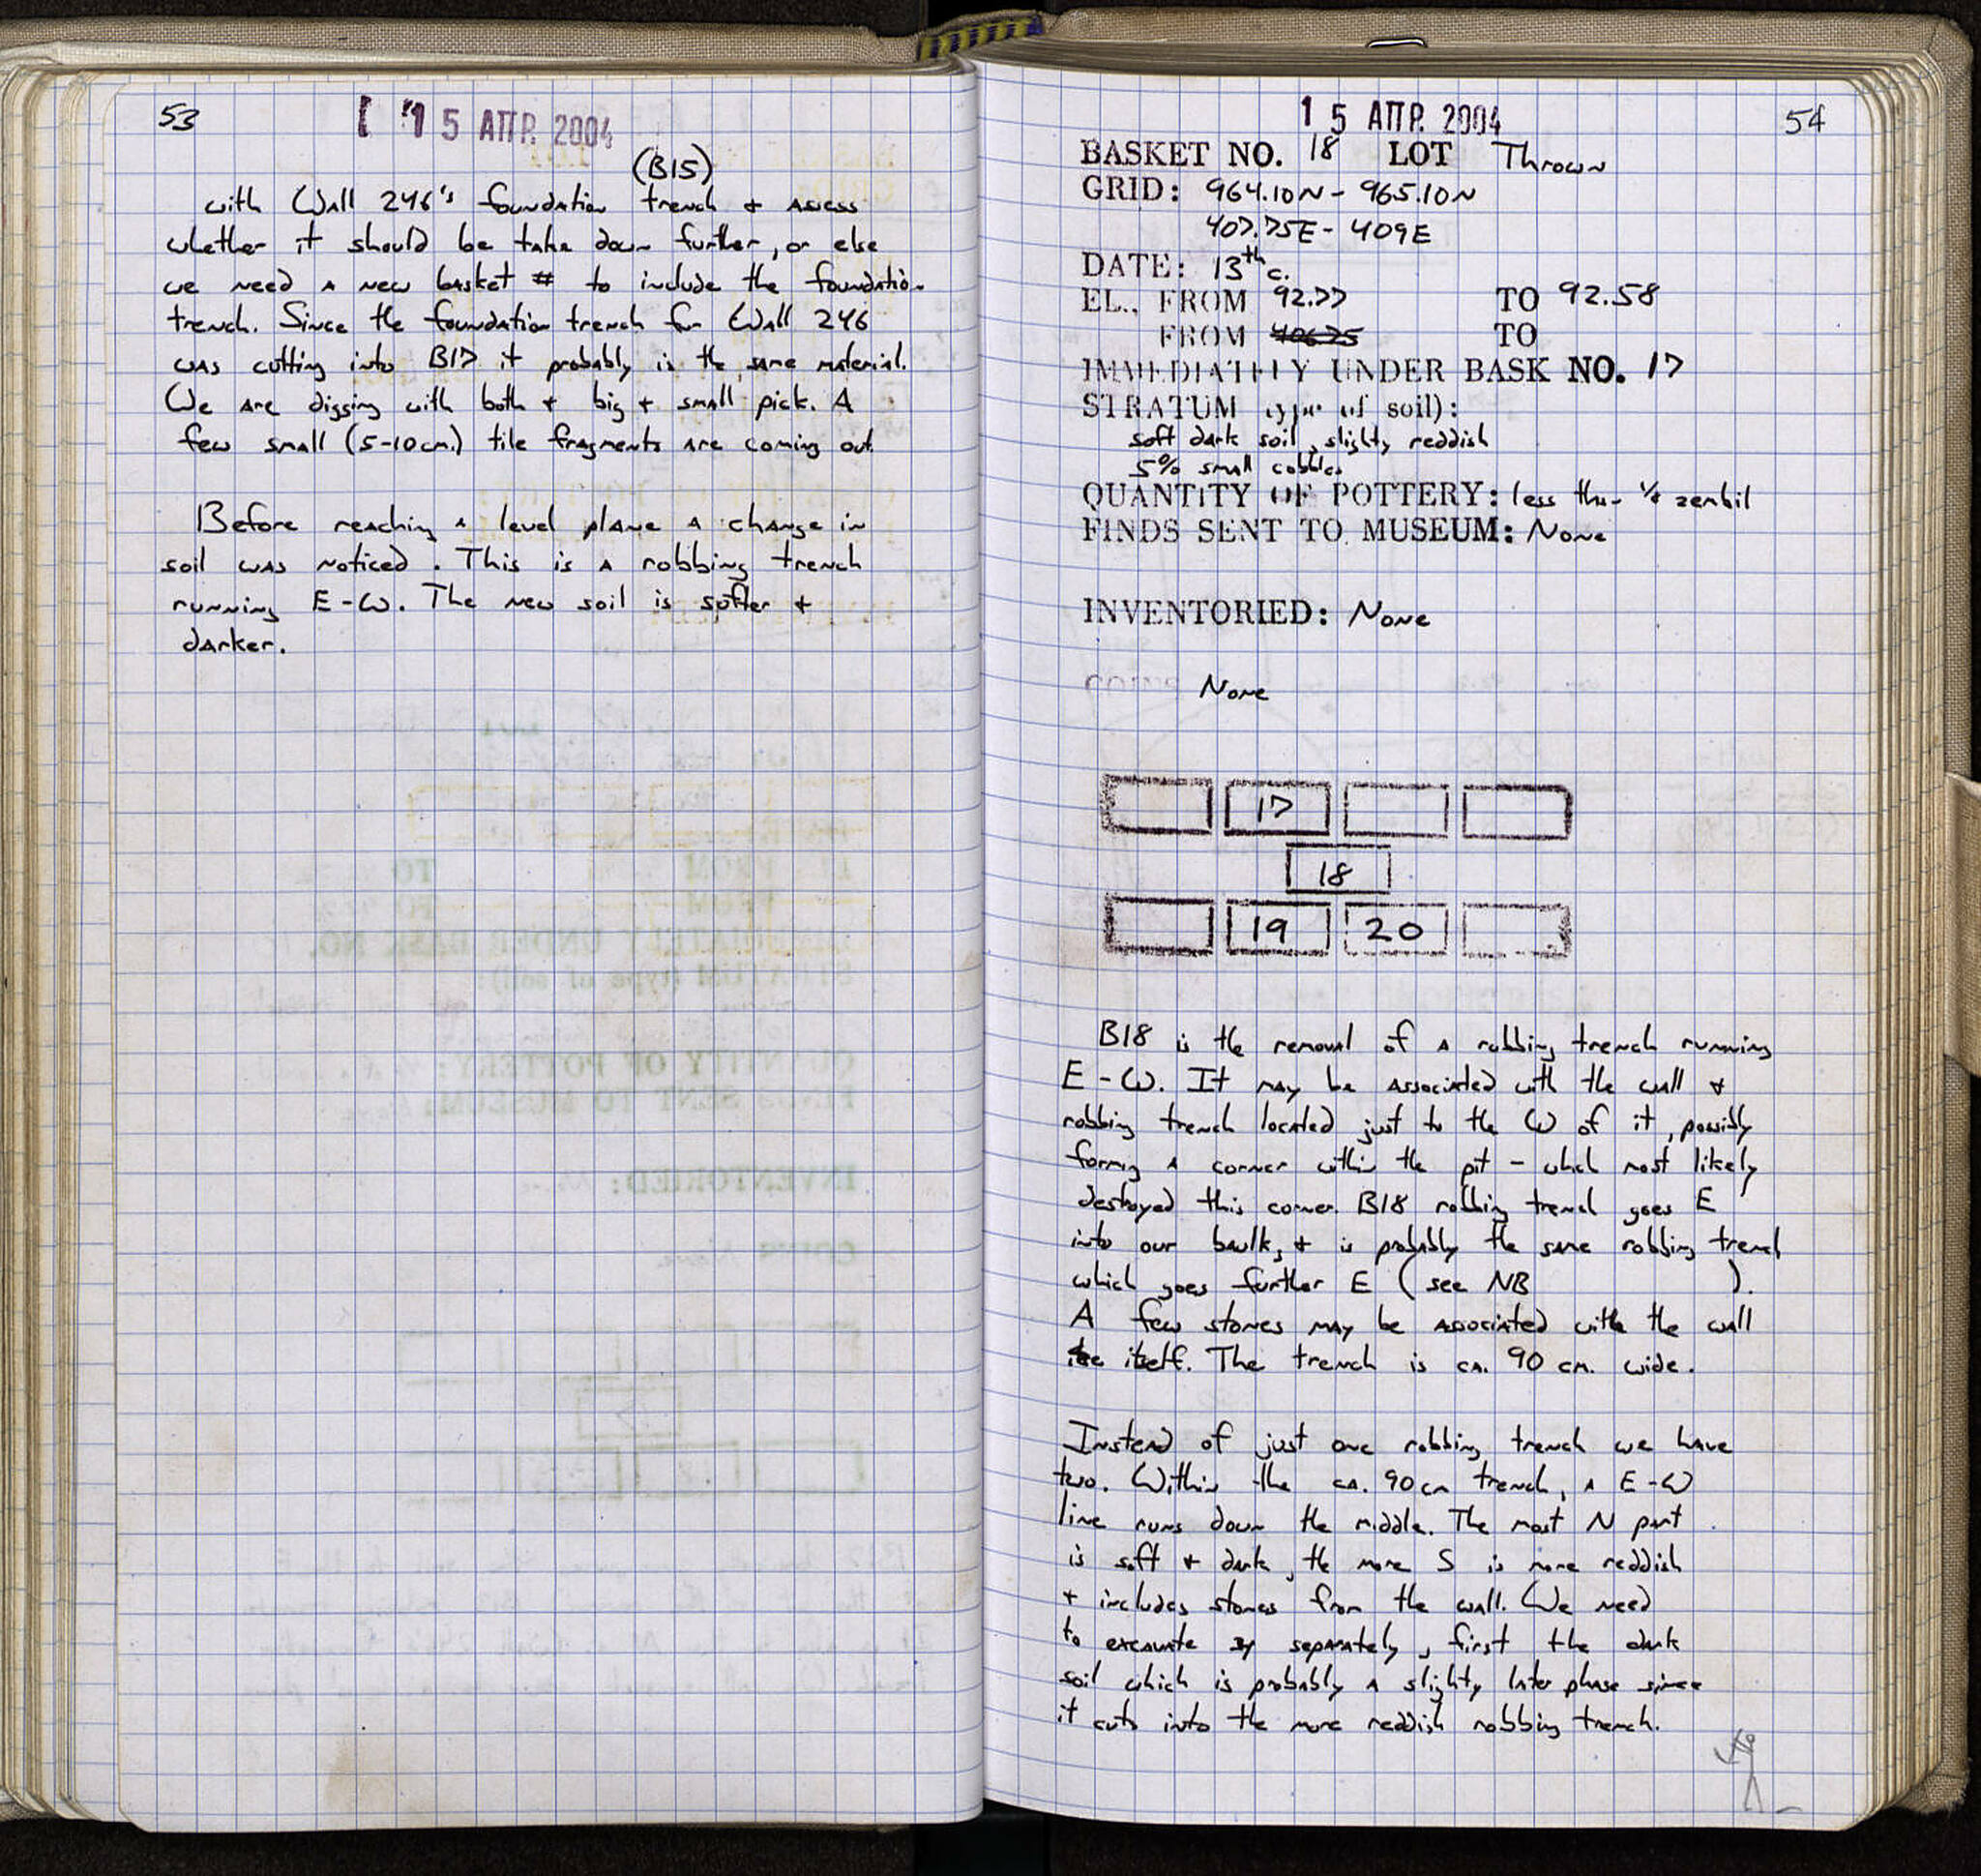 53
15 ΑΠΡ. 2004
(B15)
with Wall 246's foundation trench + assess
whether it should be take down further, or else
we need a new basket # to include the foundation
trench. Since the foundation trench for Wall 246
was cutting into B17 it probably is the same material.
We are digging with both + big + small pick. A
few small (5-10cm.) tile fragments are coming out.
Before reaching a level plane a change in
soil was noticed. This is a robbing trench
running E-W. The new soil is softer +
darker.
15 ΑΠΡ. 2004
54
BASKET NO. 18 LOT Thrown
GRID: 964.10N - 965.10N
407.75E - 409E
DATE: 13th c.
EL., FROM 92.77 TO 92.58
FROM 406.75 TO
IMMEDIATELY UNDER BASK NO. 17
STRATUM (type of soil):
soft dark soil, slighty reddish
5% small cobbles
QUANTITY OF POTTERY: less than 1/4 zembil
FINDS SENT TO MUSEUM: None
INVENTORIED: None
COINS None
17
18
19 20
B18 is the removal of a robbing trench running
E-W. It may be associated with the wall +
robbing trench located just to the W of it, possibly
forming a corner within the pit - which most likely
destroyed this corner. B18 robbing trench goes E
into our baulk, + is probably the same robbing trench
which goes further E (see NB ).
A few stones may be associated with the wall
itself. The trench is ca. 90 cm. wide.
Instead of just one robbing trench we have
two. Within the ca. 90cm trench, a E-W
line runs down the middle. The most N part
is soft + dark, the more S is more reddish
+ includes stones from the wall. We need
to excavate separately, first the dark
soil which is probably a slighty later phase since
it cuts into the more reddish robbing trench.